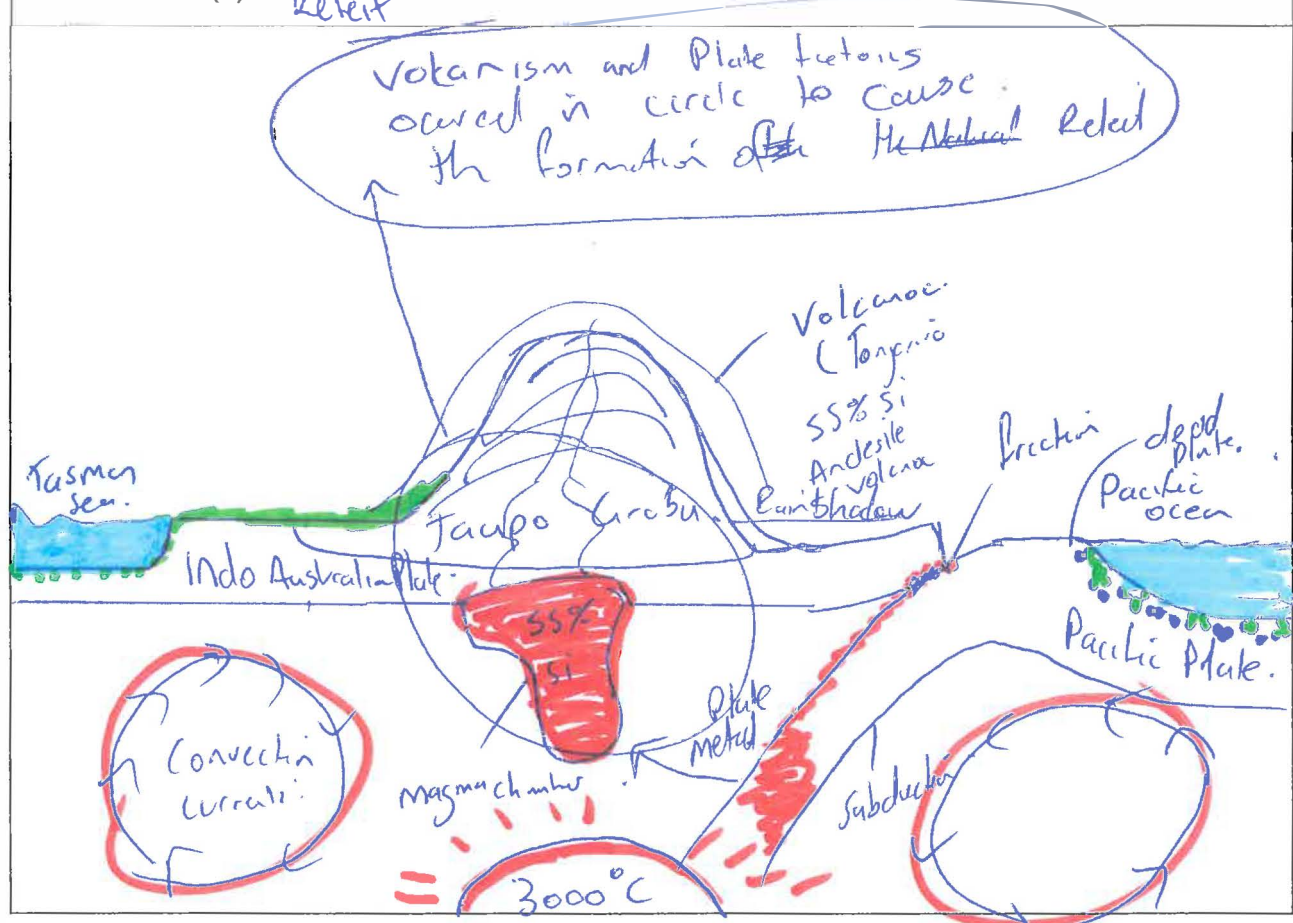 Releif
Volcanism and Plate tectonis
occured in circle to cause
th formation of Releif
Volcanoe.
( Tongario
55% Si
Andesite
volcano
Rainshadow
friction
plate.
Pacific
ocen
Tasman
Sea.
Taupo Grabu.
Indo Australia Plate.
55%
Si
Pacific Plate.
Convectin
currents.
magma chamber
Plate
Metal
Subduction
3000°C